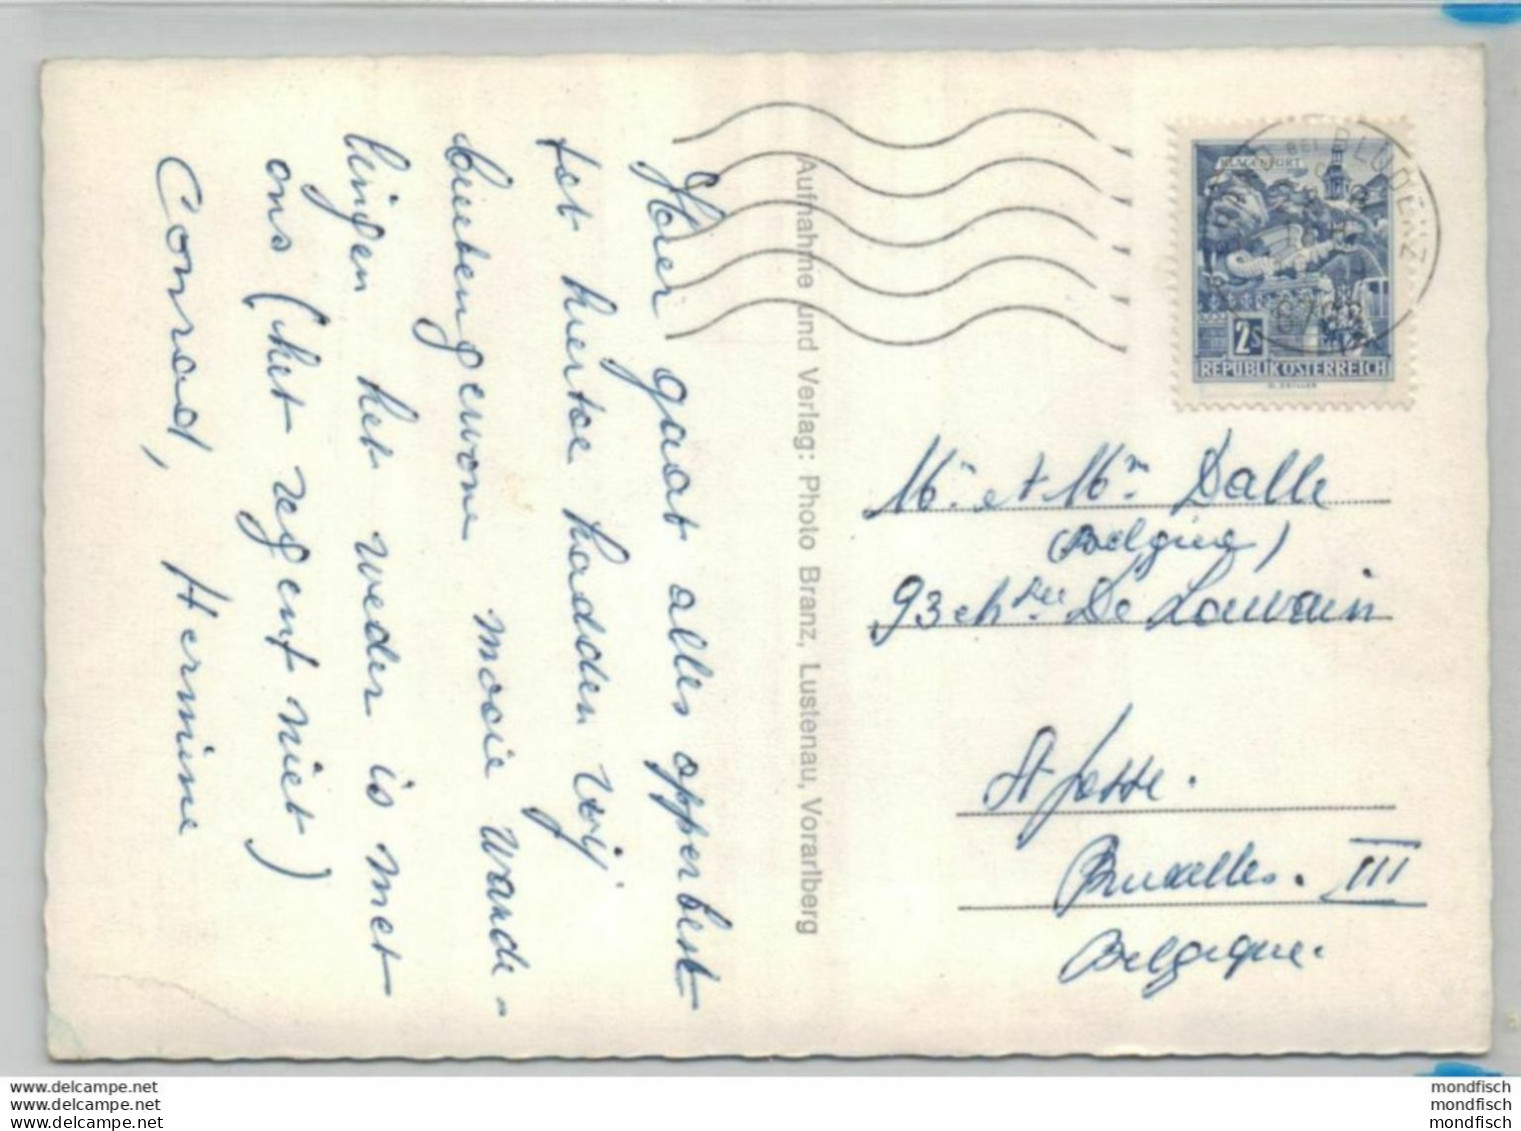 Hier gaat alles opperbest
tot hiertoe hadden wij
buitengewone mooie wande-
lingen het weder is met
ons (het regent niet)
Conrad, Hermine
Aufnahme und Verlag: Photo Branz, Lustenau, Vorarlberg
KLAGENFURT
BEI BLUDENZ
2S
REPUBLIK ÖSTERREICH
Mr et Mm Dalle
(Belgique)
93 chsée De Louvain
St Josse.
Bruxelles. III
Belgique.
www.delcampe.net
www.delcampe.net
www.delcampe.net
mondfisch
mondfisch
mondfisch